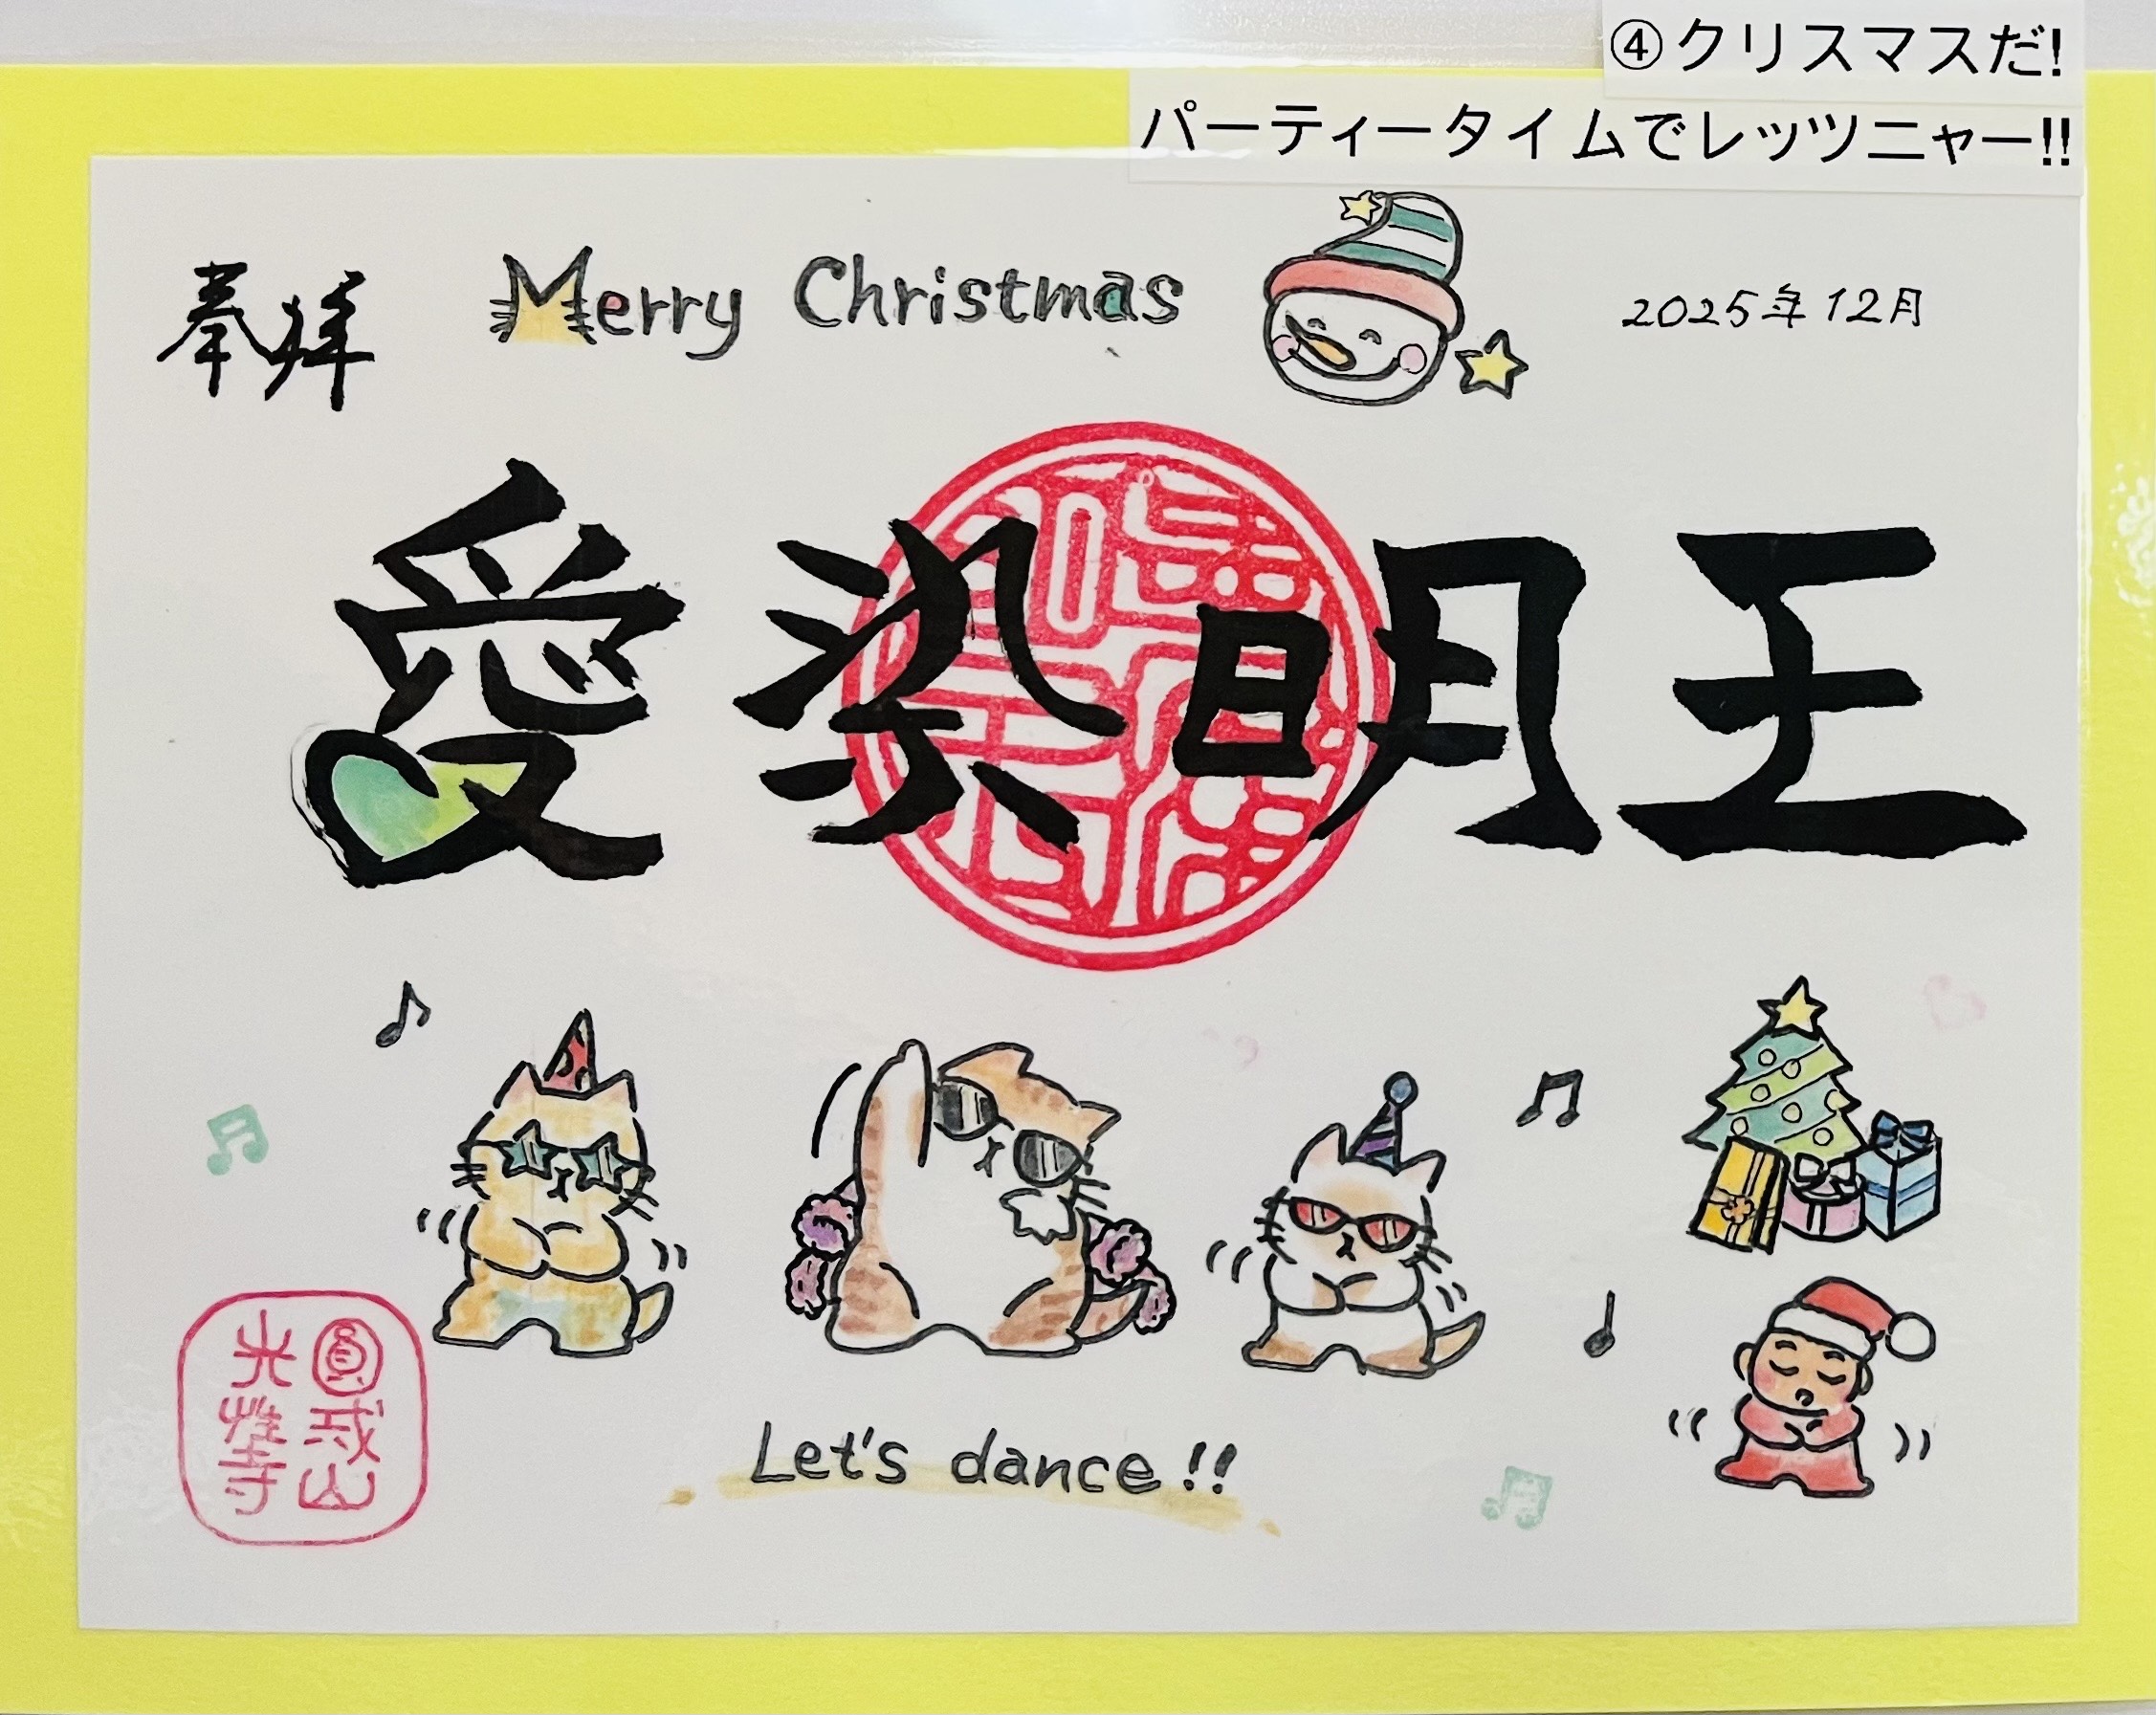 ④クリスマスだ!
パーティータイムでレッツニャー!!
奉拝
Merry Christmas
2025年12月
愛染明王
Let's dance!!
圓戒山
光薩寺